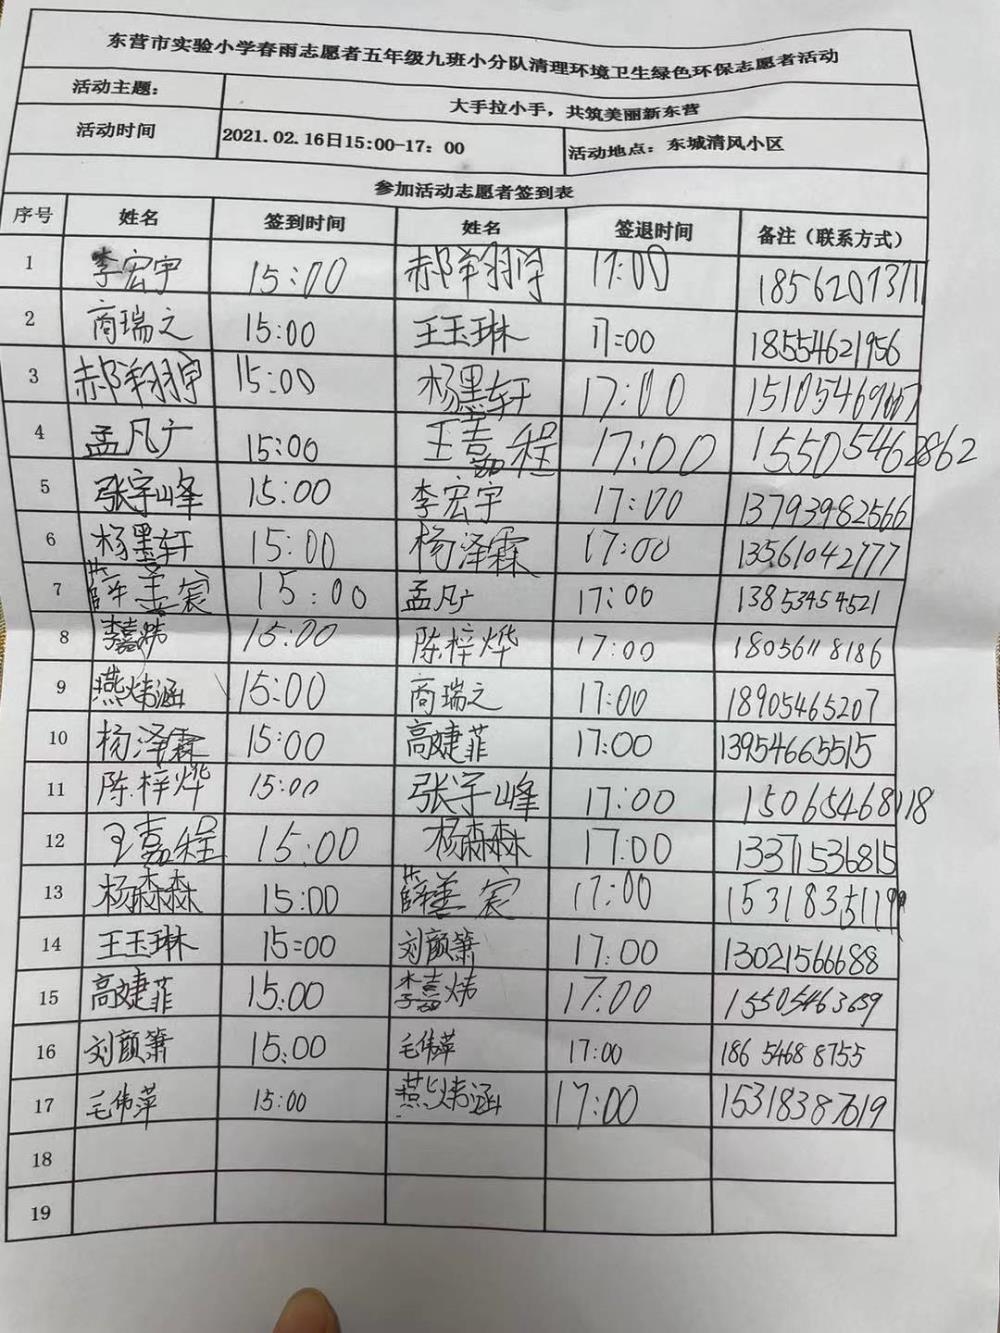 东营市实验小学春雨志愿者五年级九班小分队清理环境卫生绿色环保志愿者活动
活动主题： 大手拉小手，共筑美丽新东营
活动时间 2021.02.16日15:00-17：00 活动地点：东城清风小区
参加活动志愿者签到表
序号 姓名 签到时间 姓名 签退时间 备注（联系方式）
1 李宏宇 15:00 郝翔宇 17:00
2 商瑞之 15:00 王玉琳 17:00 18554621956
3 郝翔宇 15:00 杨墨轩 17:00
4 孟凡广 15:00 王嘉程 17:00 15505462862
5 张宇峰 15:00 李宏宇 17:00 13793982566
6 杨墨轩 15:00 杨泽霖 17:00 13561042777
7 薛善宸 15:00 孟凡广 17:00 13853454521
8 李嘉炜 15:00 陈梓烨 17:00 18056118186
9 燕炜涵 15:00 商瑞之 17:00 18905465207
10 杨泽霖 15:00 高婕菲 17:00 13954665515
11 陈梓烨 15:00 张宇峰 17:00 15065468118
12 王嘉程 15:00 杨森森 17:00 13371536815
13 杨森森 15:00 薛善宸 17:00
14 王玉琳 15:00 刘颜箫 17:00 13021566688
15 高婕菲 15:00 李嘉炜 17:00
16 刘颜箫 15:00 毛伟萍 17:00 186 5468 8755
17 毛伟萍 15:00 燕炜涵 17:00 15318387619
18
19